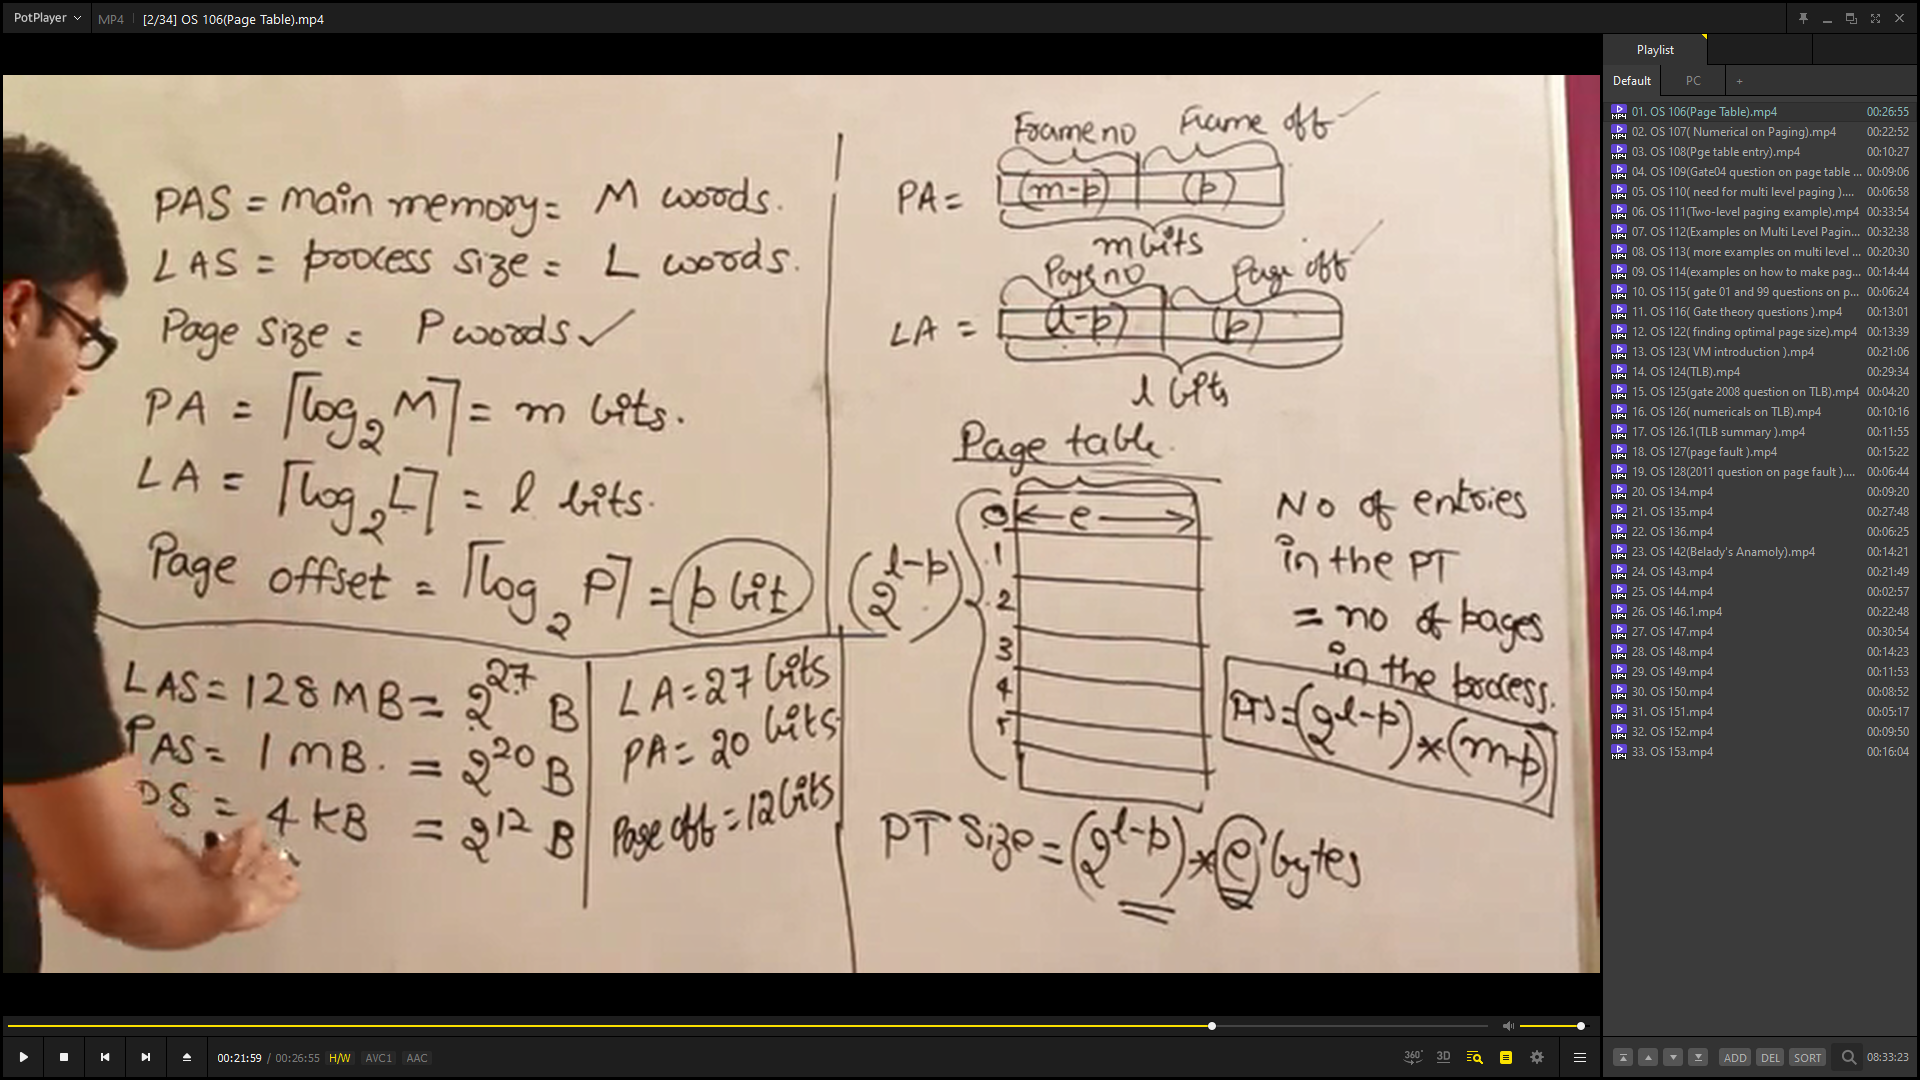 PotPlayer
MP4
[2/34] OS 106(Page Table).mp4
PAS = main memory = M words.
LAS = process size = L words.
Page size = P words ✓
PA = ⌈log₂ M⌉ = m bits.
LA = ⌈log₂ L⌉ = l bits.
Page offset = ⌈log₂ P⌉ = p bit
LAS = 128 MB = 2²⁷ B
PAS = 1 MB. = 2²⁰ B
PS = 4 KB = 2¹² B
LA = 27 bits
PA = 20 bits
Page off = 12 bits
Frame no Frame off ✓
PA = (m-p) (p)
m bits
Page no Page off ✓
LA = (l-p) (p)
l bits
Page table
(2^(l-p))
0 e
1
2
3
4
5
No of entries
in the PT
= no of pages
in the process.
PTS = (2^(l-p)) * (m-p)
PT Size = (2^(l-p)) * e bytes
Playlist
Default PC +
01. OS 106(Page Table).mp4 00:26:55
02. OS 107( Numerical on Paging).mp4 00:22:52
03. OS 108(Pge table entry).mp4 00:10:27
04. OS 109(Gate04 question on page table ... 00:09:06
05. OS 110( need for multi level paging ).... 00:06:58
06. OS 111(Two-level paging example).mp4 00:33:54
07. OS 112(Examples on Multi Level Pagin... 00:32:38
08. OS 113( more examples on multi level ... 00:20:30
09. OS 114(examples on how to make pag... 00:14:44
10. OS 115( gate 01 and 99 questions on p... 00:06:24
11. OS 116( Gate theory questions ).mp4 00:13:01
12. OS 122( finding optimal page size).mp4 00:13:39
13. OS 123( VM introduction ).mp4 00:21:06
14. OS 124(TLB).mp4 00:29:34
15. OS 125(gate 2008 question on TLB).mp4 00:04:20
16. OS 126( numericals on TLB).mp4 00:10:16
17. OS 126.1(TLB summary ).mp4 00:11:55
18. OS 127(page fault ).mp4 00:15:22
19. OS 128(2011 question on page fault ).... 00:06:44
20. OS 134.mp4 00:09:20
21. OS 135.mp4 00:27:48
22. OS 136.mp4 00:06:25
23. OS 142(Belady's Anamoly).mp4 00:14:21
24. OS 143.mp4 00:21:49
25. OS 144.mp4 00:02:57
26. OS 146.1.mp4 00:22:48
27. OS 147.mp4 00:30:54
28. OS 148.mp4 00:14:23
29. OS 149.mp4 00:11:53
30. OS 150.mp4 00:08:52
31. OS 151.mp4 00:05:17
32. OS 152.mp4 00:09:50
33. OS 153.mp4 00:16:04
00:21:59 / 00:26:55 H/W AVC1 AAC
360° 3D
ADD DEL SORT 08:33:23